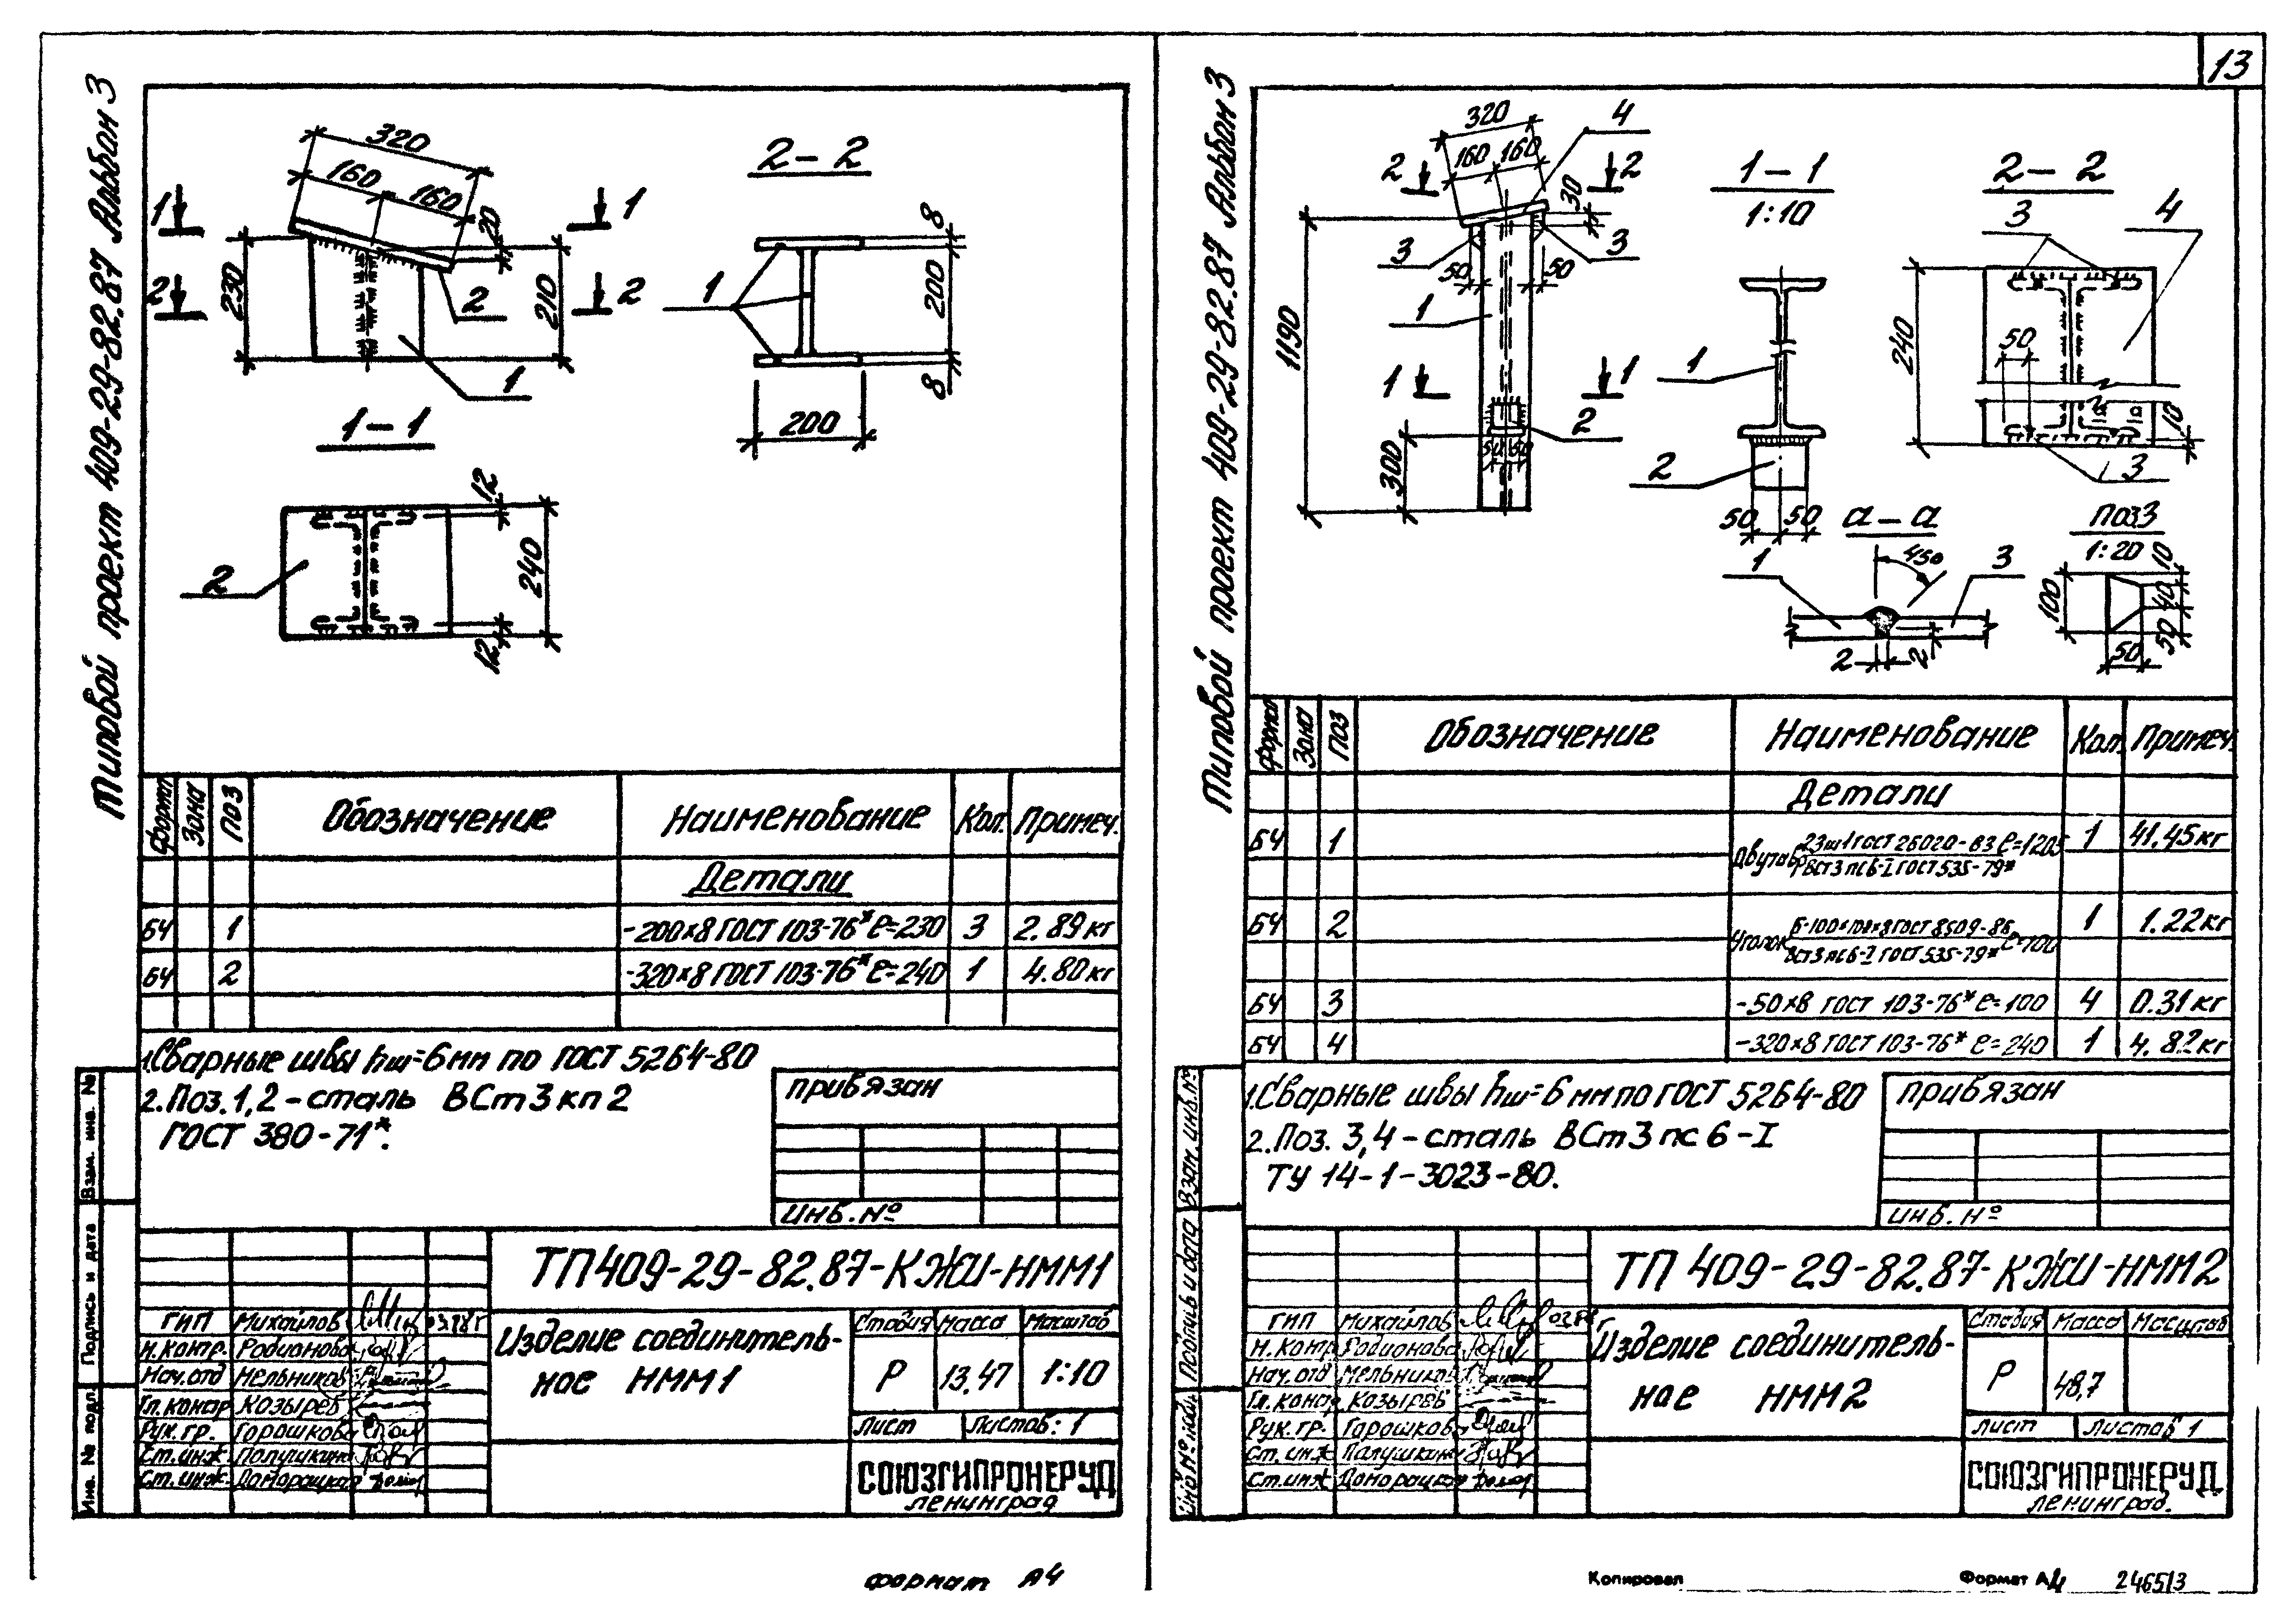 13
Типовой проект 409-29-82.87 Альбом 3
320
160
160
20
1
1
2
2
230
210
2
1
2-2
8
200
8
1
200
1-1
12
240
12
2
Формат
Зона
Поз
Обозначение
Наименование
Кол.
Примеч.
Детали
БЧ 1 -200×8 ГОСТ 103-76* ℓ=230 3 2.89кг
БЧ 2 -320×8 ГОСТ 103-76* ℓ=240 1 4.80кг
1.Сварные швы hш=6мм по ГОСТ 5264-80
2.Поз.1,2-сталь ВСт3кп2
ГОСТ 380-71*.
Привязан
Инв.№
Взам. инв. №
Подпись и дата
Инв. № подл.
ТП409-29-82.87-КЖИ-НММ1
ГИП Михайлов
Н.контр. Родионова
Нач.отд Мельников
Гл.констр Козырев
Рук.гр. Горошков
Ст.инж. Полушкин
Ст.инж.
Изделие соединитель-
ное НММ1
Стадия Масса Масштаб
Р 13.47 1:10
Лист Листов: 1
СОЮЗГИПРОНЕРУД
Ленинград
Формат А4
Типовой проект 409-29-82.87 Альбом 3
320
4
160 160
2
2
30
3
3
50
50
1190
1
1
1
2
300
50 50
1-1
1:10
1
2
50 50
2-2
3
4
240
50
а а
10
3
а-а
1
45°
3
2
2
Поз3
1:20
10
100
40
50
50
Формат
Зона
Поз
Обозначение
Наименование
Кол.
Примеч.
Детали
БЧ 1 Двутавр 23ш1 ГОСТ 26020-83 ℓ=1205 1 41.45кг
ВСт3пс6-I ГОСТ 535-79*
БЧ 2 Уголок Б-100×100×8 ГОСТ 8509-86 ℓ=100 1 1.22кг
ВСт3пс6-I ГОСТ 535-79*
БЧ 3 -50×8 ГОСТ 103-76* ℓ=100 4 0.31кг
БЧ 4 -320×8 ГОСТ 103-76* ℓ=240 1 4.82кг
1.Сварные швы hш=6мм по ГОСТ 5264-80
2.Поз. 3,4-сталь ВСт3пс6-I
ТУ 14-1-3023-80.
Привязан
Инв.№
Взам. инв.№
Подпись и дата
Инв.№ подл.
ТП 409-29-82.87-КЖИ-НММ2
ГИП Михайлов
Н.контр Родионова
Нач.отд Мельников
Гл.констр Козырев
Рук.гр. Горошков
Ст.инж Полушкин
Ст.инж
Изделие соединитель-
ное НММ2
Стадия Масса Масштаб
Р 48,7
Лист Листов 1
СОЮЗГИПРОНЕРУД.
Ленинград.
Копировал
Формат А4
24651/3